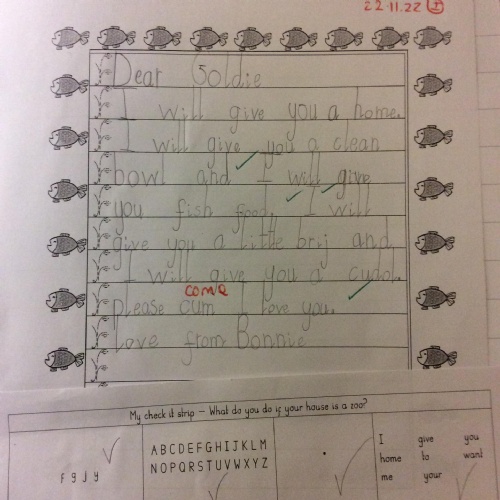 22.11.22 I
Dear Goldie
I will give you a home.
I will give you a clean
bowl and I will give
you fish food. I will
give you a little brij and
I will give you a cudol.
come
please cum I love you.
Love from Bonnie
My check it strip – What do you do if your house is a zoo?
f g j y
ABCDEFGHIJKLM
NOPQRSTUVWXYZ
.
I give you
home to want
me your